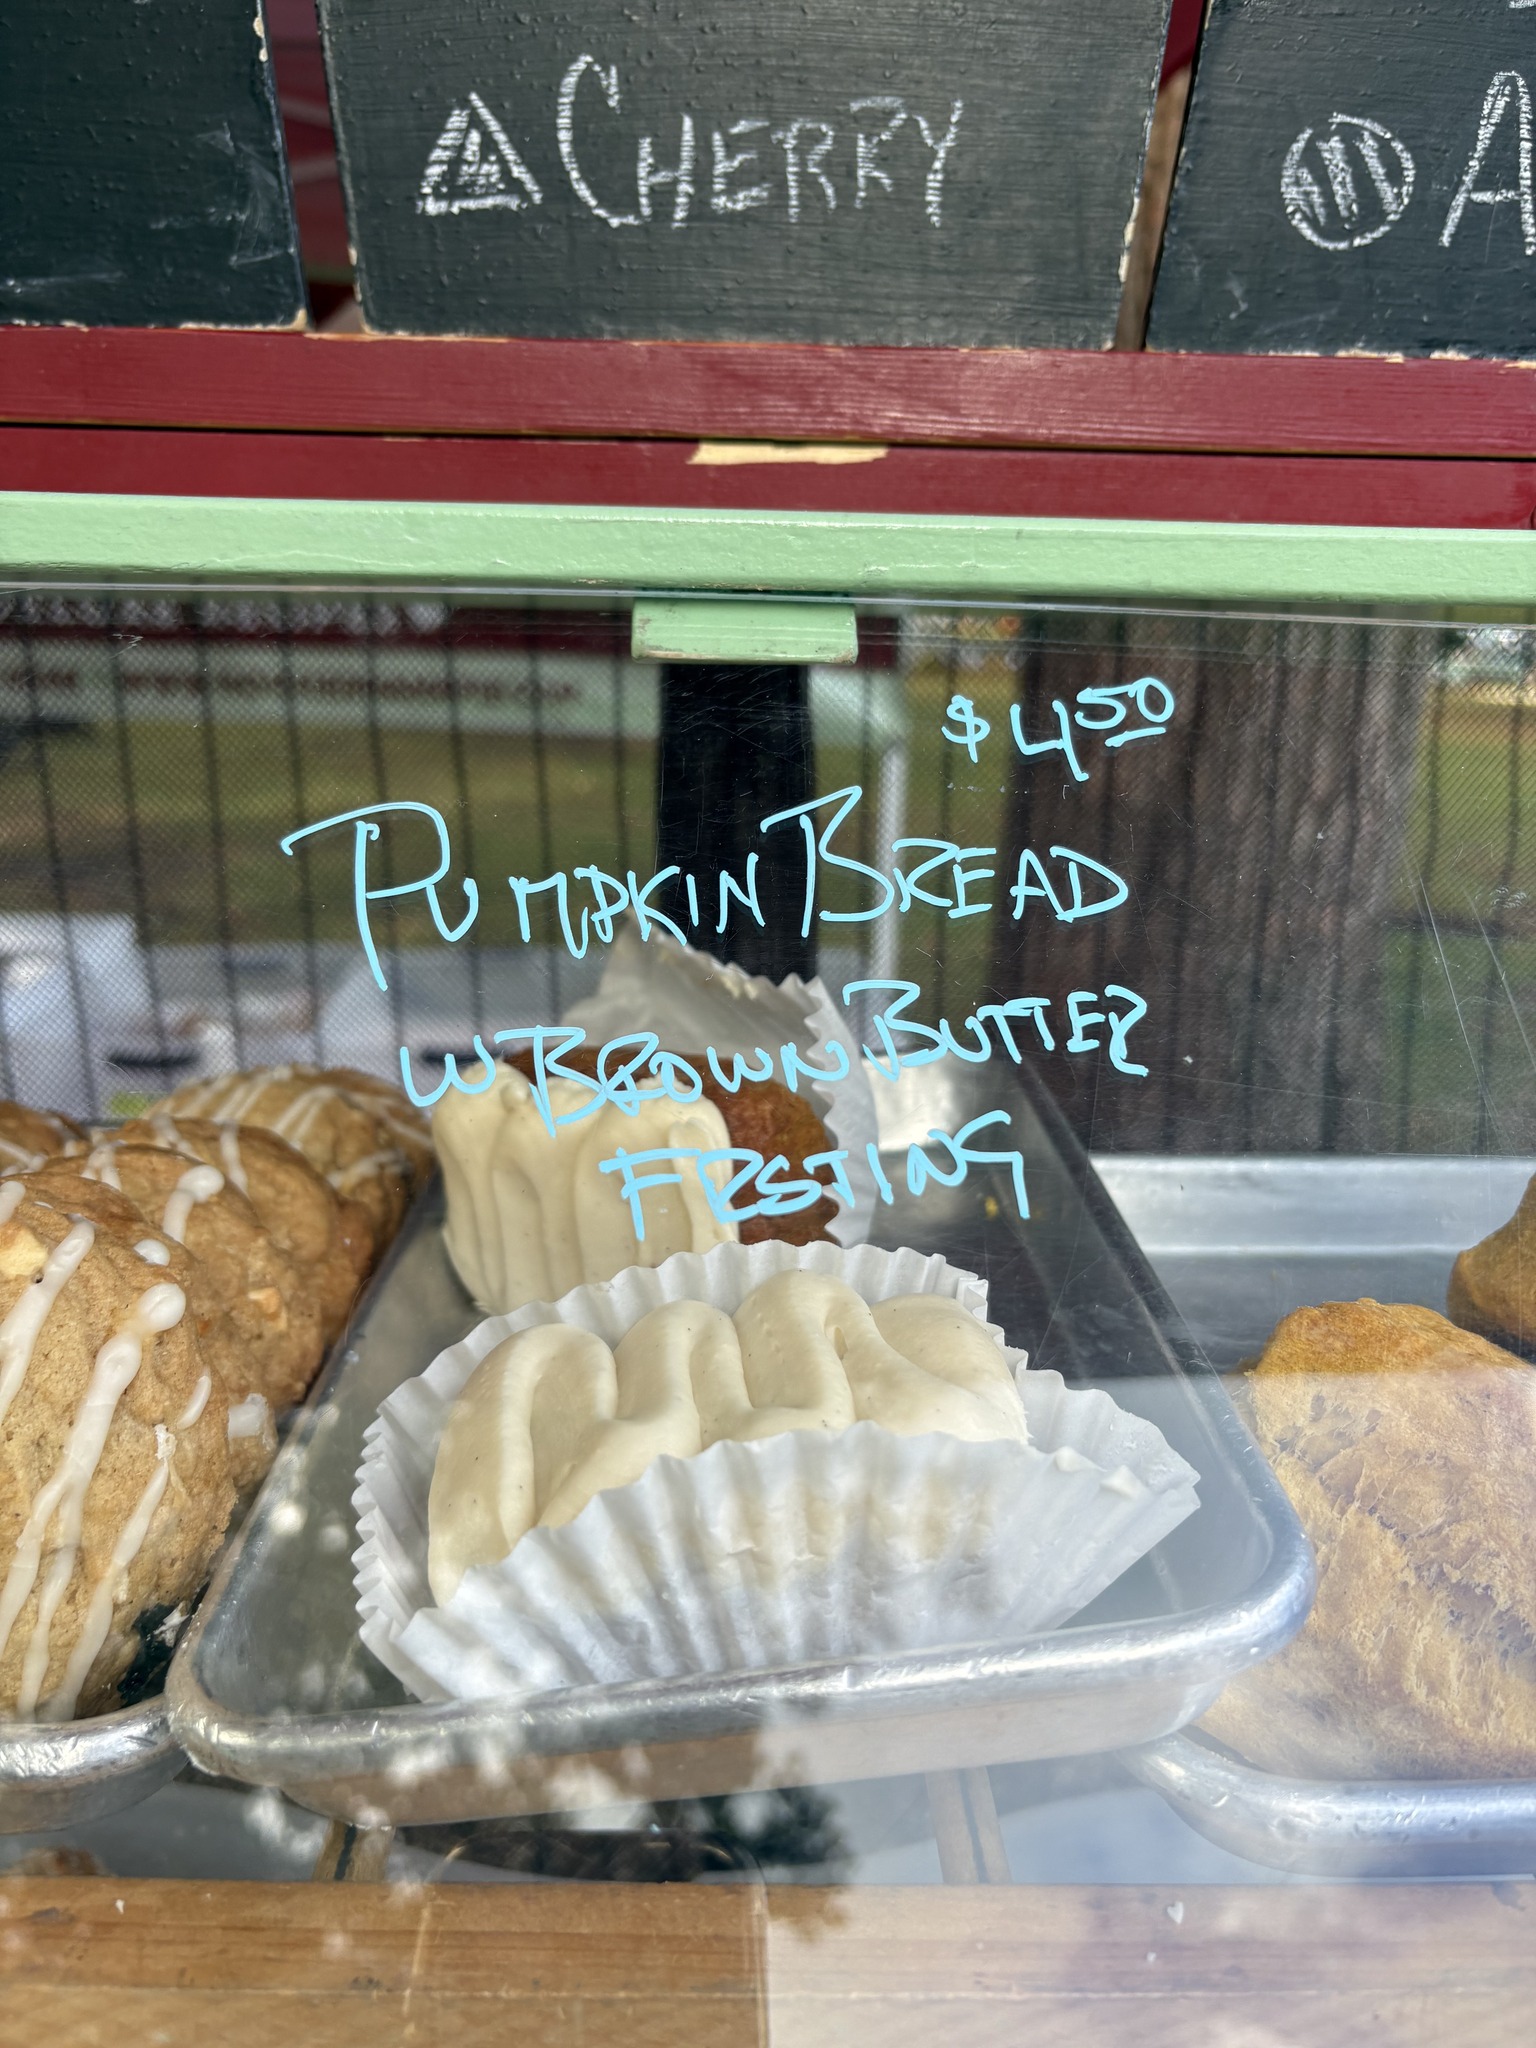 CHERRY
A
$4.50
PUMPKIN BREAD
W BROWN BUTTER
FRSTING